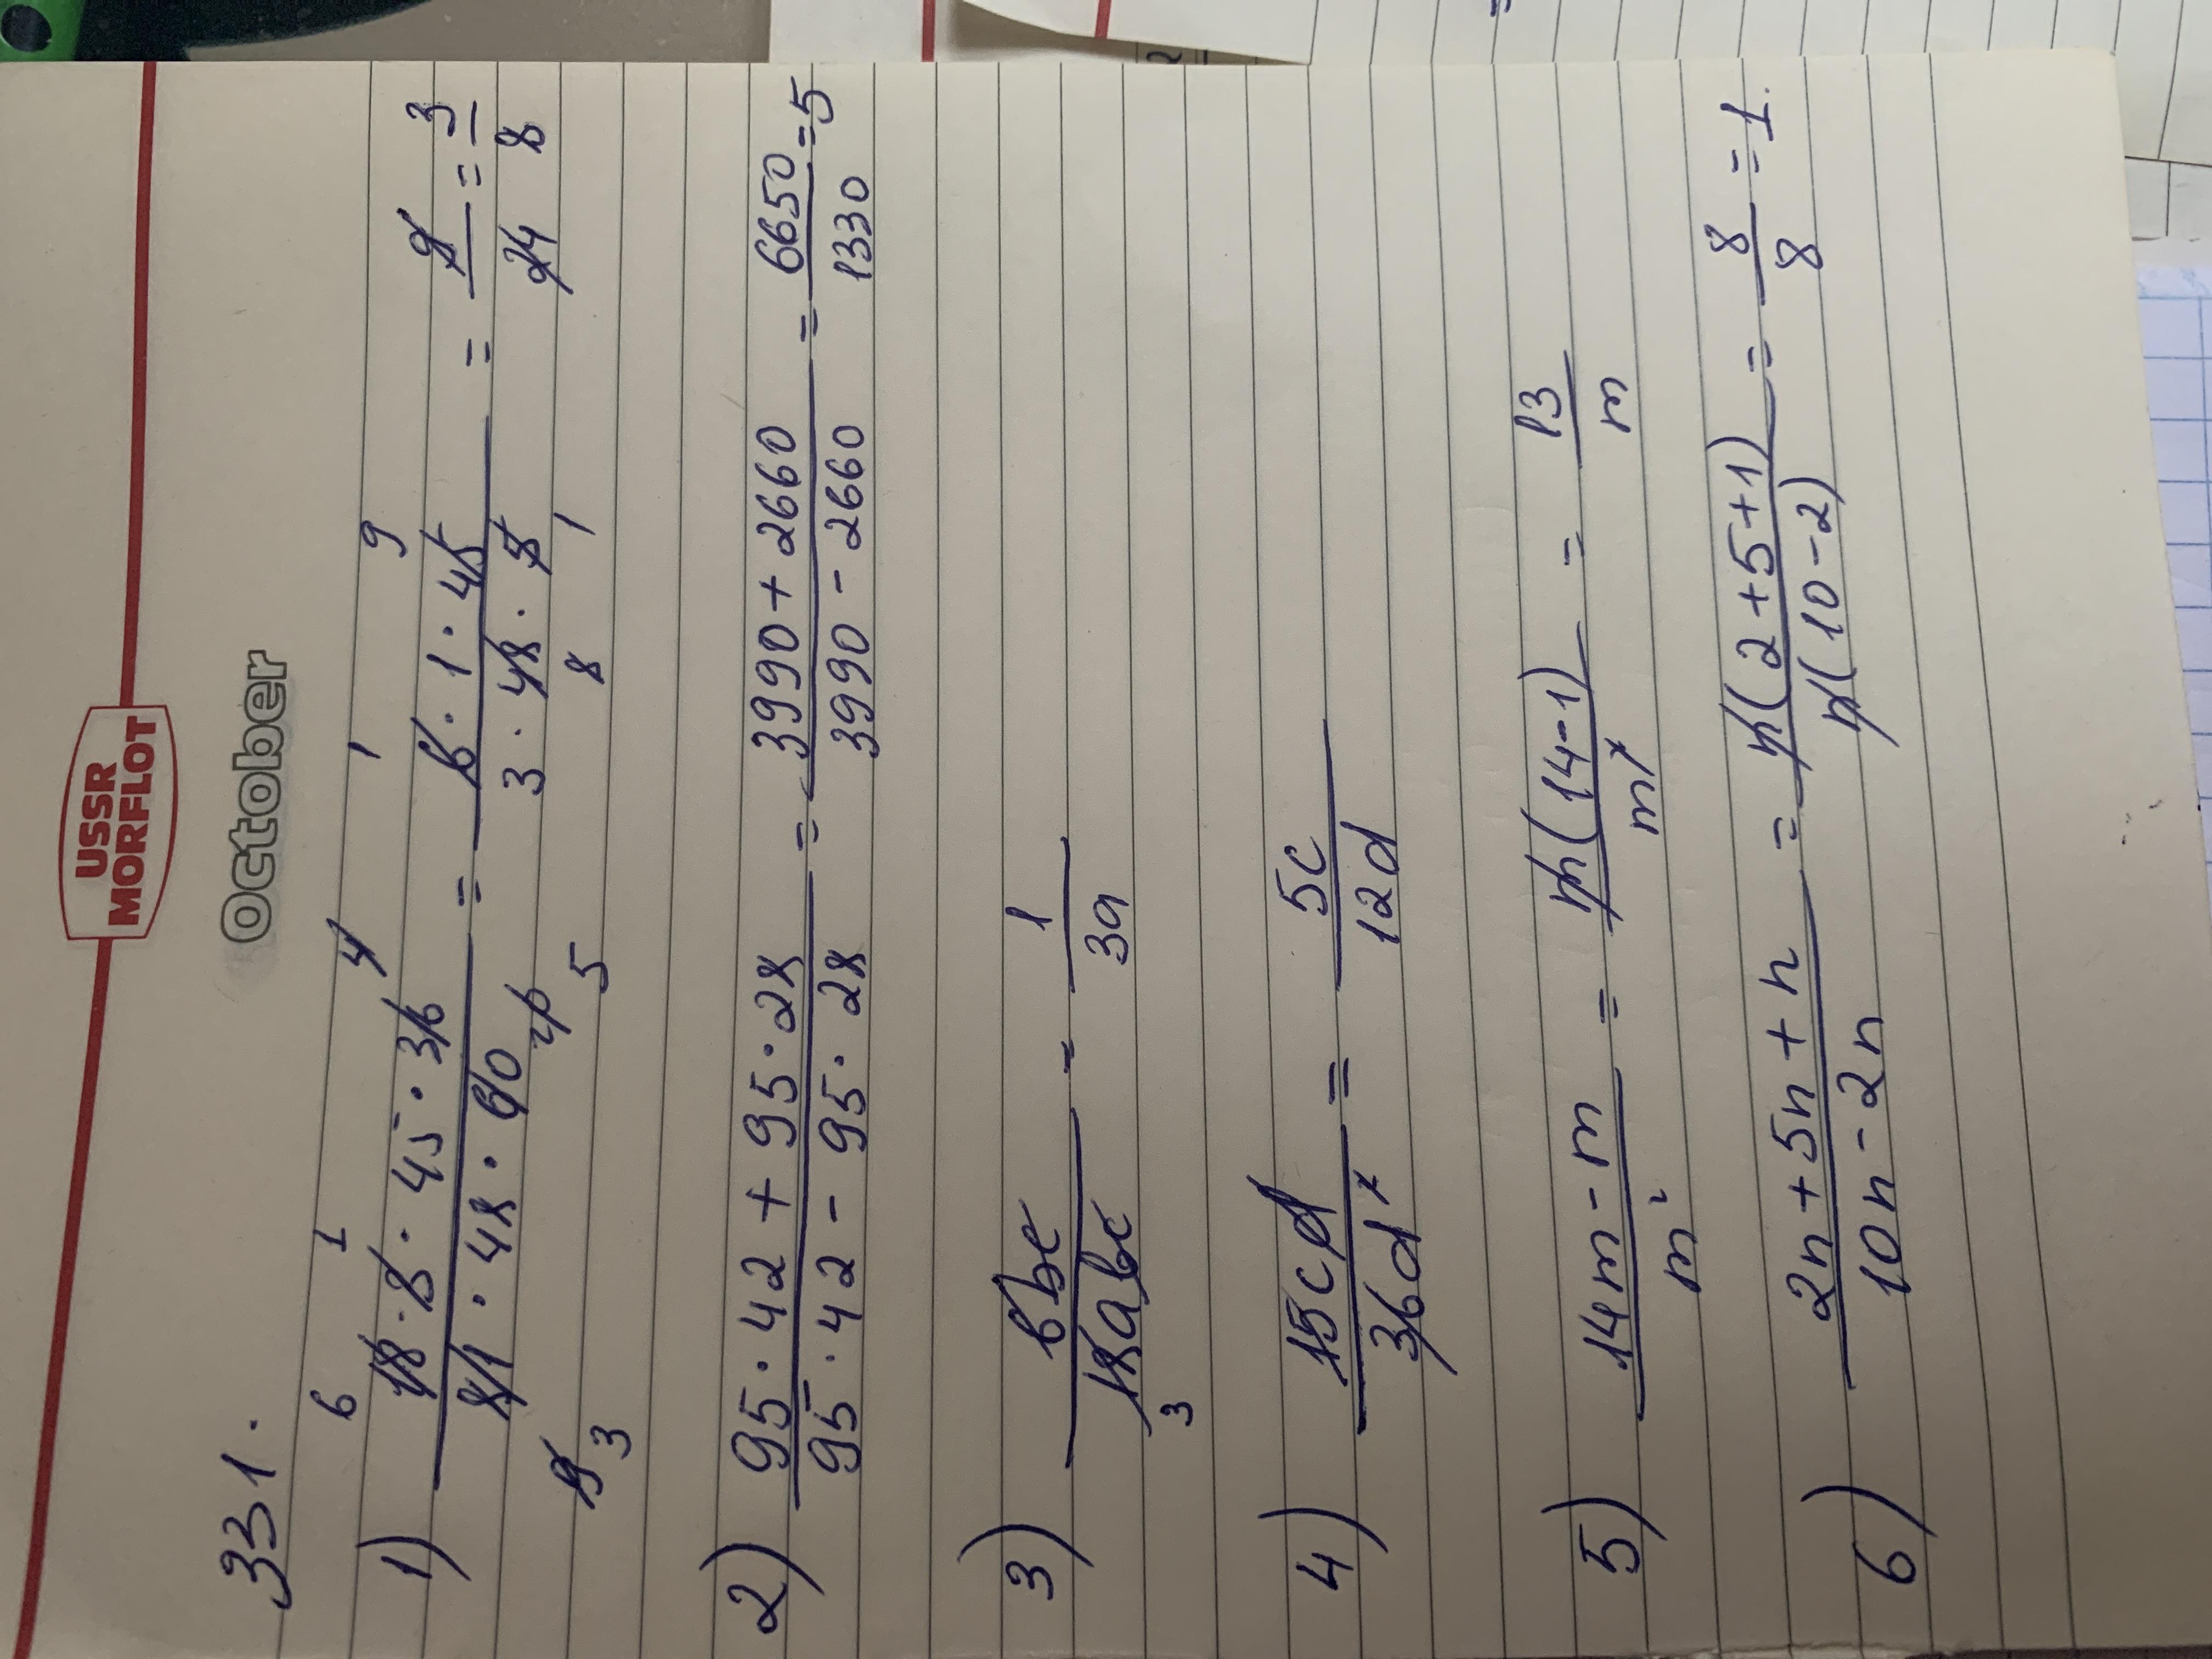 USSR
MORFLOT
October
331.
6 1 4 1 9
1) 18·8·45·36/81·48·60 = 6·1·45/3·48·5 = 9/24 = 3/8
9 3 10 5 8 1
2) 95·42 + 95·28/95·42 - 95·28 = 3990 + 2660/3990 - 2660 = 6650/1330 = 5
3) 6bc/18abc = 1/3a
3
4) 15cd/36d² = 5c/12d
5) 14m - m/m² = m(14-1)/m² = 13/m
6) 2n + 5n + n/10n - 2n = n(2+5+1)/n(10-2) = 8/8 = 1.